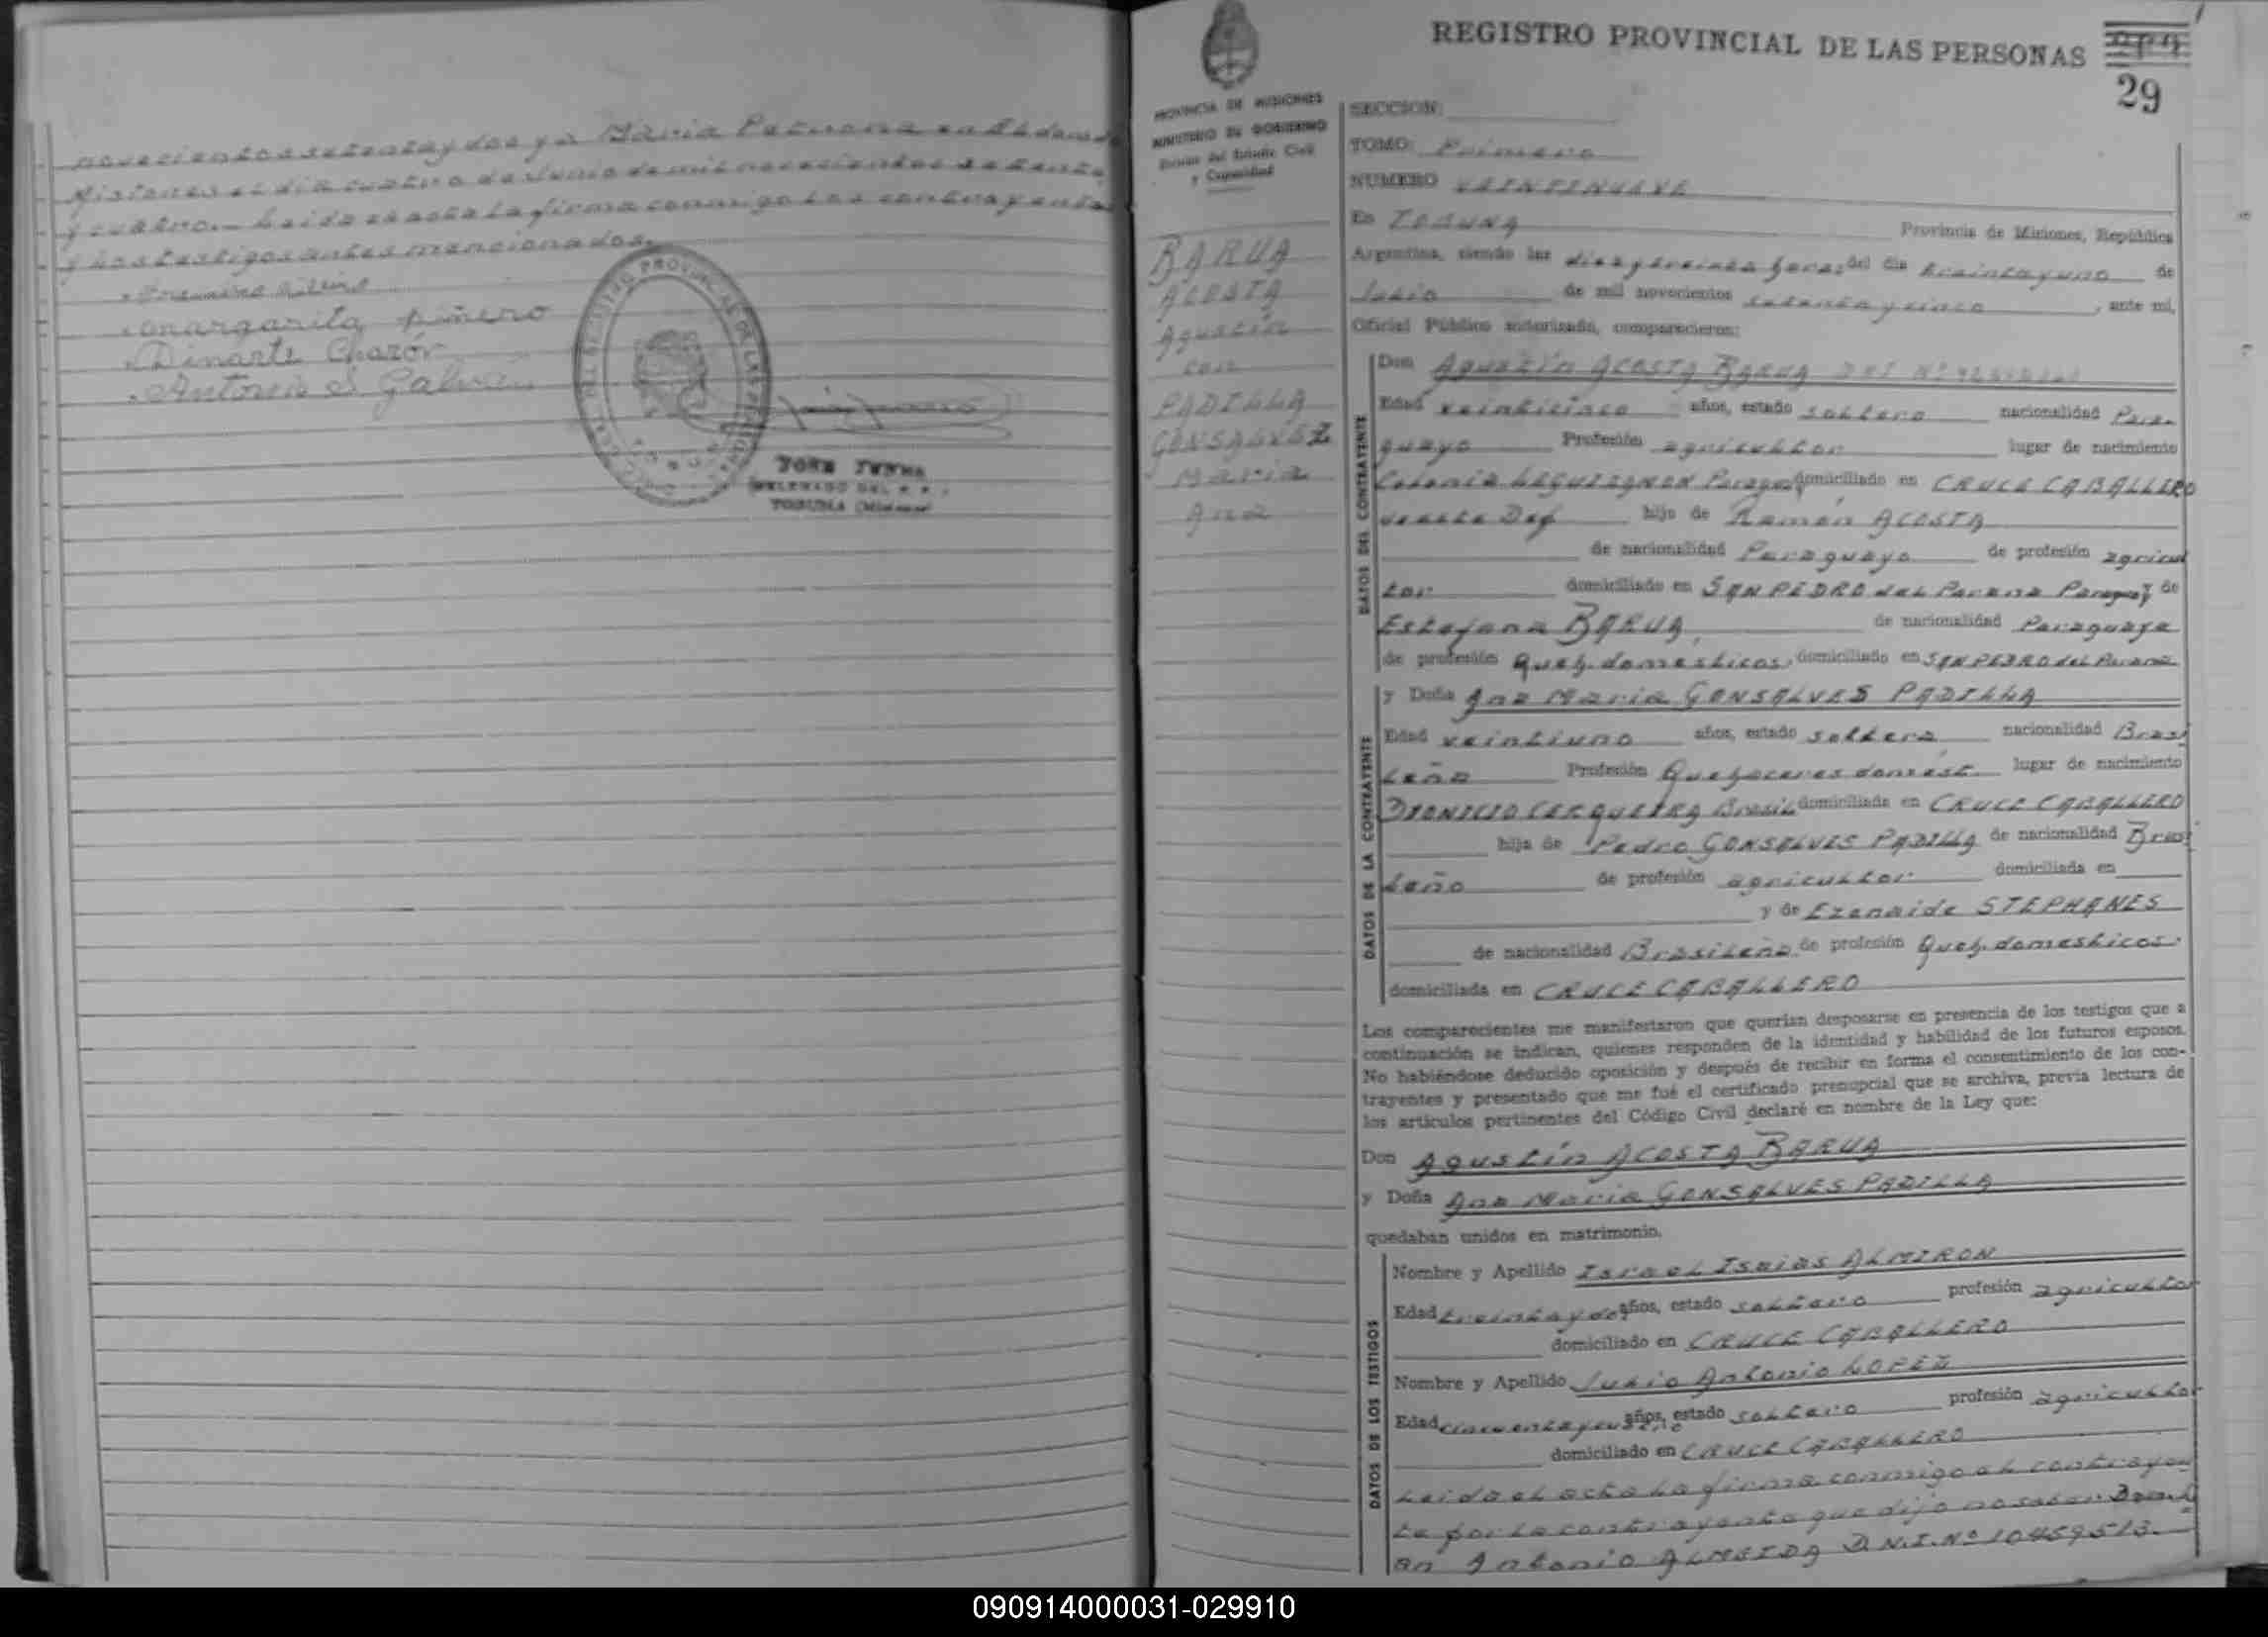 novecientos setenta y dos y a Maria Petrona en El Dorado
Misiones el día cuatro de Junio de mil novecientos setenta
y cuatro.- Leida el acta la firma conmigo los contrayentes
y los testigos antes mencionados.
Margarita Piñero
Dinarte Chazór
Antonio S. Galva
REGISTRO PROVINCIAL DE LAS PERSONAS
29
PROVINCIA DE MISIONES
MINISTERIO DE GOBIERNO
del Estado Civil
y Capacidad
BARUA
ACOSTA
Agustín
con
PADILLA
GONSALVEZ
Maria
Ana
SECCION:
TOMO: Primero
NUMERO VEINTINUEVE
En TOBUNA Provincia de Misiones, República
Argentina, siendo las diez y treinta horas del día treinta y uno de
Julio de mil novecientos setenta y cinco, ante mí,
Oficial Público autorizado, comparecieron:
DATOS DEL CONTRATENTE
Don Agustín ACOSTA BARUA DNI Nº
Edad veinticinco años, estado soltero nacionalidad Para-
guayo Profesión agricultor lugar de nacimiento
Colonia LEGUIZAMON Paraguay domiciliado en CRUCE CABALLERO
de este Dep hijo de Ramón ACOSTA
de nacionalidad Paraguayo de profesión agricul
tor domiciliado en SAN PEDRO del Parana Paraguay y de
Estefana BARUA, de nacionalidad Paraguaya
de profesión Queh. domesticos, domiciliado en SAN PEDRO del Parana
DATOS DE LA CONTRATENTE
y Doña Ana Maria GONSALVES PADILLA
Edad veintiuno años, estado soltera nacionalidad Brasi
leña Profesión Quehaceres domést. lugar de nacimiento
DIONICIO CERQUEIRA Brasil domiciliada en CRUCE CABALLERO
hija de Pedro GONSALVES PADILLA de nacionalidad Brasi
leño de profesión agricultor domiciliada en
y de Ezenaide STEPHANES
de nacionalidad Brasileña de profesión Queh. domesticos.
domiciliada en CRUCE CABALLERO
Los comparecientes me manifestaron que querían desposarse en presencia de los testigos que a
continuación se indican, quienes responden de la identidad y habilidad de los futuros esposos.
No habiéndose deducido oposición y después de recibir en forma el consentimiento de los con-
trayentes y presentado que me fué el certificado prenupcial que se archiva, previa lectura de
los artículos pertinentes del Código Civil declaré en nombre de la Ley que:
Don Agustín ACOSTA BARUA
y Doña Ana Maria GONSALVES PADILLA
quedaban unidos en matrimonio.
DATOS DE LOS TESTIGOS
Nombre y Apellido Israel Isaias ALMIRON
Edad treinta y dos años, estado soltero profesión agricultor
domiciliado en CRUCE CABALLERO
Nombre y Apellido Julio Antonio LOPEZ
Edad cincuenta y años, estado soltero profesión agricultor
domiciliado en CRUCE CABALLERO
Leida el acta la firma conmigo el contrayen
te por la contrayente que dijo no saber
an Antonio ALMEIDA D.N.I. Nº 10459513.-
090914000031-029910